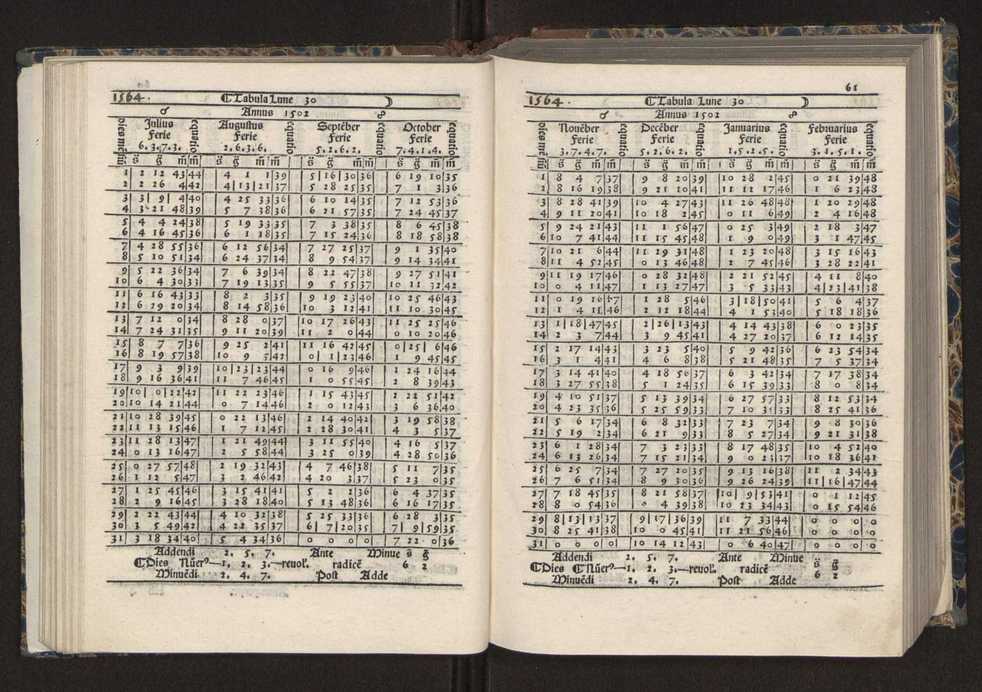 1564. ☾Tabula Lune 30 ☽
♂ Annus 1502 ☍
Julius Augustus Septēber October
Ferie Ferie Ferie Ferie
6. 3. 7. 3. 2. 6. 3. 6. 5. 2. 6. 2. 7. 4. 1. 4.
1 2 12 43 44 4 1 1 39 5 16 30 36 6 19 10 35
2 2 26 4 42 4 13 21 37 5 28 25 35 7 1 3 36
3 3 9 4 40 4 25 33 36 6 10 14 35 7 12 53 36
4 3 21 48 39 5 7 38 36 6 21 57 35 7 24 45 37
5 4 4 24 38 5 19 33 35 7 3 38 35 8 6 45 38
6 4 16 45 36 6 1 18 35 7 15 24 36 8 18 58 38
7 4 28 55 36 6 12 56 34 7 27 25 37 9 1 35 40
8 5 10 51 34 6 24 37 34 8 9 54 37 9 14 34 41
9 5 22 36 34 7 6 39 34 8 22 47 38 9 27 51 41
10 6 4 30 33 7 19 13 35 9 5 55 37 10 11 32 42
11 6 16 43 33 8 2 3 35 9 19 23 40 10 25 46 43
12 6 29 20 34 8 14 58 36 10 3 12 41 11 10 30 45
13 7 12 0 34 8 28 0 37 10 17 26 43 11 25 25 46
14 7 24 31 35 9 11 20 39 11 2 0 44 0 10 20 46
15 8 7 7 36 9 25 2 41 11 16 42 45 0 25 6 46
16 8 19 57 38 10 9 5 42 0 1 23 46 1 9 45 45
17 9 3 9 39 10 23 23 44 0 16 9 46 1 24 16 44
18 9 16 36 41 11 7 46 45 1 0 55 45 2 8 39 43
19 10 0 12 42 11 22 23 46 1 15 43 45 2 22 51 42
20 10 14 21 44 0 7 14 46 2 0 12 43 3 6 36 40
21 10 28 39 45 0 22 13 46 2 14 40 42 3 19 58 38
22 11 13 15 46 1 7 12 45 2 28 30 41 4 3 5 37
23 11 28 13 47 1 21 49 44 3 11 55 40 4 16 5 37
24 0 13 16 47 2 5 58 44 3 25 0 39 4 28 50 36
25 0 27 57 48 2 19 32 43 4 7 46 38 5 11 7 35
26 1 12 5 47 3 2 46 42 4 20 3 37 5 23 0 35
27 1 25 45 46 3 15 41 41 5 2 2 36 6 4 37 35
28 2 9 16 45 3 28 18 40 5 13 48 36 6 16 17 35
29 2 22 43 44 4 10 32 38 5 25 33 36 6 28 3 35
30 3 5 49 42 4 22 35 37 6 7 20 35 7 9 59 35
31 3 18 34 40 5 4 34 36 0 0 0 0 7 22 0 36
Addendi 2. 5. 7. Ante Minue
☾Dies Nūer⁹ 1. 2. 3. reuol'. radicē 6 2
Minuēdi 2. 4. 7. Post Adde
61
1564. ☾Tabula Lune 30 ☽
Annus 1502 ☍
Nouēber Decēber Januarius Februarius
Ferie Ferie Ferie Ferie
3. 7. 4. 7. 5. 2. 6. 2. 1. 5. 2. 5. 3. 1. 5. 1.
1 8 4 7 37 9 8 20 39 10 28 2 45 0 21 39 48
2 8 16 19 38 9 21 10 41 11 12 17 46 1 6 23 48
3 8 28 41 39 10 4 27 43 11 26 48 48 1 20 29 48
4 9 11 20 41 10 18 2 45 0 11 6 49 2 4 16 48
5 9 24 21 43 11 1 56 47 0 25 3 49 2 18 3 47
6 10 7 41 44 11 15 45 48 1 9 0 49 3 1 47 45
7 10 21 6 44 11 29 31 48 1 23 20 48 3 15 16 43
8 11 4 52 45 0 13 46 48 2 7 45 46 3 28 22 41
9 11 19 17 46 0 28 32 48 2 21 52 45 4 11 8 40
10 0 4 11 47 1 13 27 47 3 5 33 43 4 23 41 38
11 0 19 16 47 1 28 5 46 3 18 50 41 5 6 4 37
12 1 4 11 46 2 12 18 44 4 1 53 40 5 18 18 36
13 1 18 47 45 2 26 13 43 4 14 43 38 6 0 23 35
14 2 3 7 44 3 9 45 41 4 27 20 37 6 12 14 35
15 2 17 14 43 3 23 5 40 5 9 42 36 6 23 54 34
16 3 1 4 41 4 6 8 38 5 21 48 35 7 5 37 34
17 3 14 41 40 4 18 56 37 6 3 42 34 7 17 38 34
18 3 27 55 38 5 1 24 35 6 15 39 33 8 0 8 34
19 4 10 51 37 5 13 39 34 6 27 57 33 8 12 53 34
20 4 23 35 36 5 25 59 33 7 10 31 33 8 25 41 36
21 5 6 17 34 6 8 32 33 7 23 7 34 9 8 30 36
22 5 19 2 34 6 21 9 33 8 5 27 34 9 21 31 38
23 6 1 28 34 7 3 23 33 8 17 48 35 10 4 51 40
24 6 13 26 34 7 15 21 34 9 0 23 37 10 18 36 41
25 6 25 7 34 7 27 10 35 9 13 16 38 11 2 34 43
26 7 6 51 34 8 9 30 36 9 26 24 39 11 16 47 44
27 7 18 45 35 8 21 58 37 10 9 53 41 0 1 12 45
28 8 0 54 36 9 4 39 38 10 23 34 43 0 15 54 46
29 8 13 13 37 9 17 36 39 11 7 33 44 0 0 0 0
30 8 25 41 38 10 0 45 41 11 21 56 46 0 0 0 0
31 0 0 0 0 10 14 12 43 0 6 40 47 0 0 0 0
Addendi 2. 5. 7. Ante Minue
☾Dies ☾Nūer⁹ 1. 2. 3. reuol'. radicē 6 2
Minuēdi 2. 4. 7. Post Adde